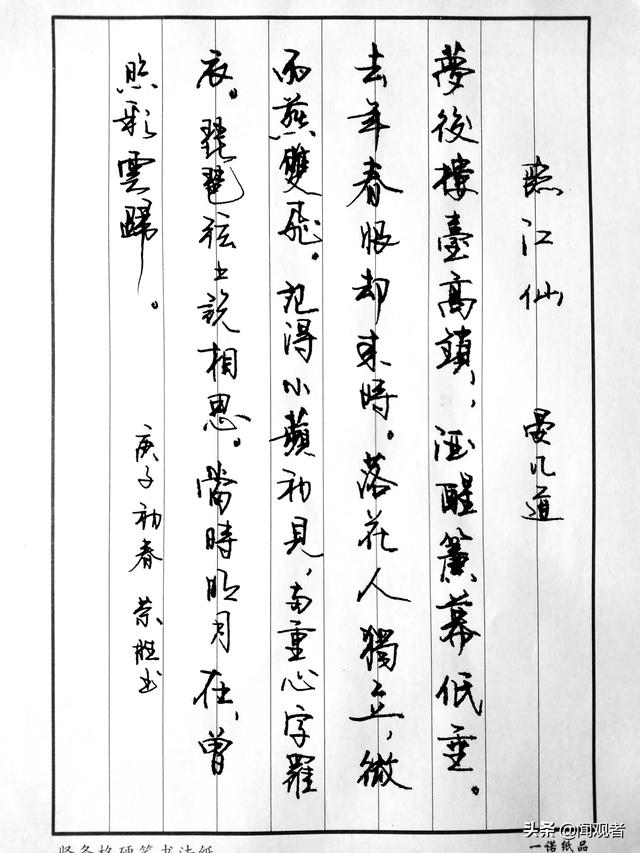 臨江仙 晏几道
夢後樓臺高鎖，酒醒簾幕低垂。
去年春恨却來時。落花人獨立，微
雨燕雙飛。記得小蘋初見，两重心字羅
衣。琵琶弦上説相思。當時明月在，曾
照彩雲歸。
庚子初春 荣胜书
竖条格硬笔书法纸
一诺纸品
头条 @闻观者